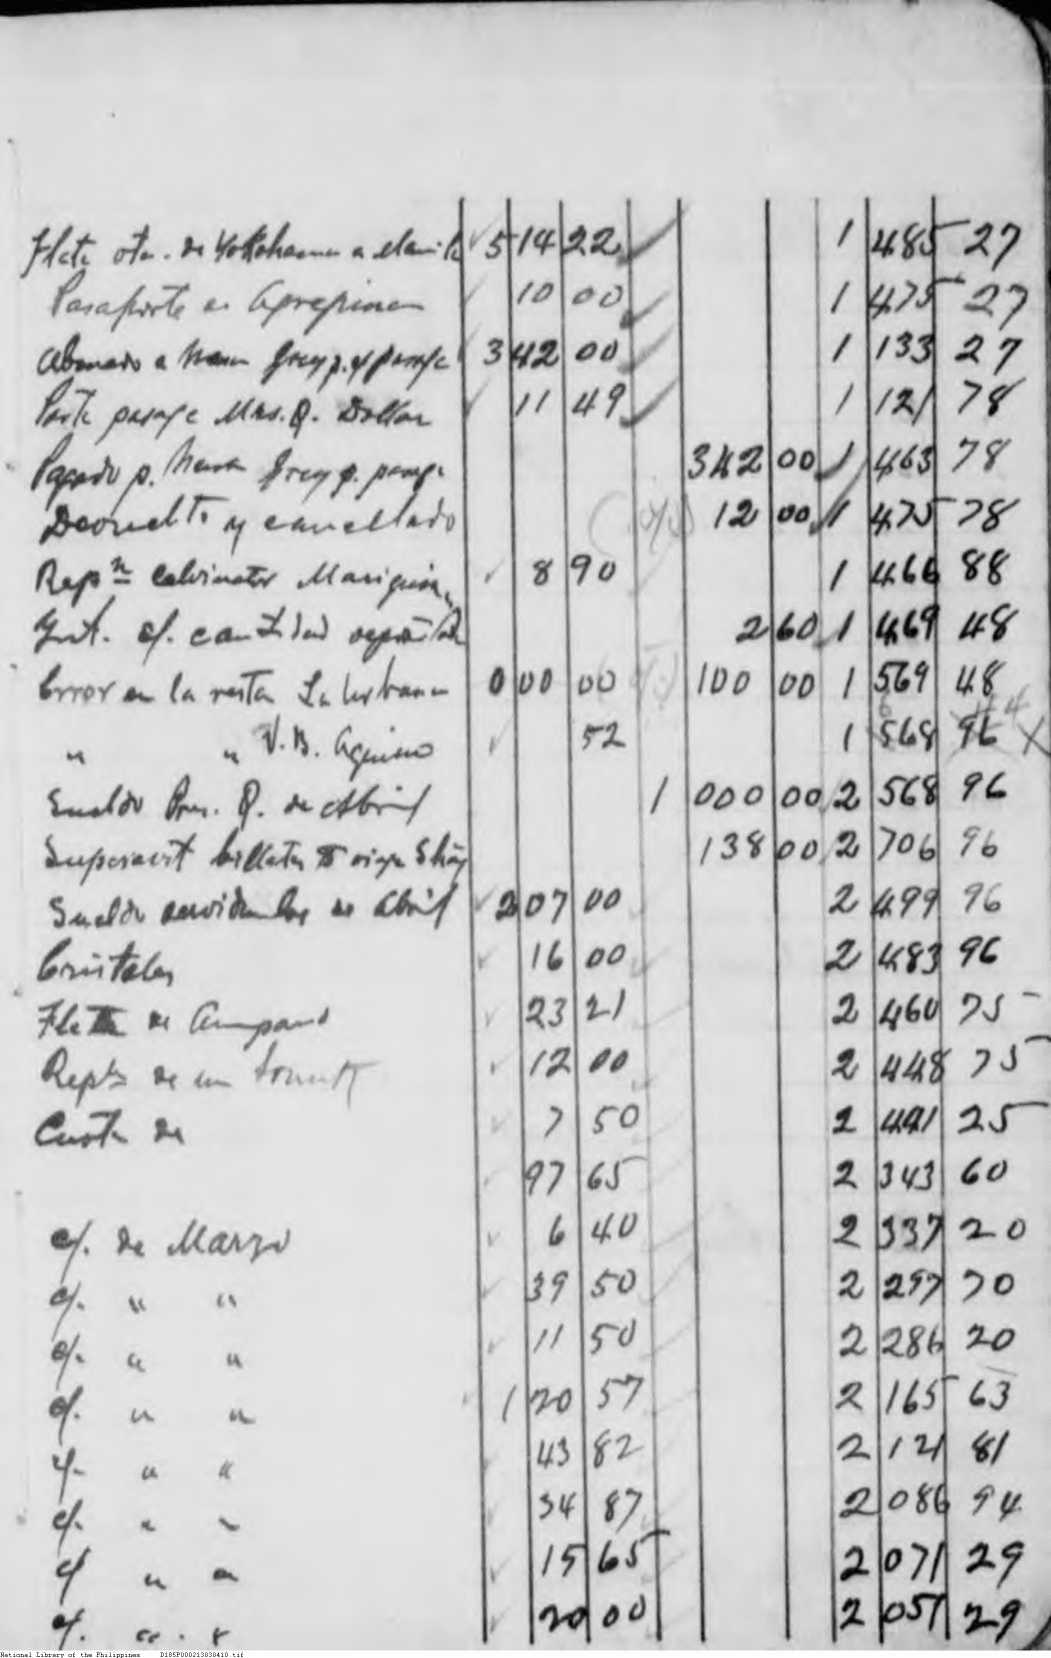 Flete ota. de Yokohama a Manila ✓ 514 22 1 485 27
Pasaporte de Agripina ✓ 10 00 1 475 27
Abonado a Grey p. pasaje 342 00 1 133 27
Parte pasaje Mrs. Q. Dollar ✓ 11 49 1 121 78
Pagado p. Grey p. pasaje 342 00 1 463 78
Devuelto y cancellado 12 00 1 475 78
Repn Calvinator Mariquina ✓ 8 90 1 466 88
Int. s/. cantidad 2 60 1 469 48
Error en la resta La Urbana 0 00 00 100 00 1 569 48
" " V. B. Aquino ✓ 52 1 568 96 X
Sueldo Pres. Q. de Abril 1 000 00 2 568 96
Superavit billetes viaje 138 00 2 706 96
Sueldo servidumbre de Abril ✓ 207 00 2 499 96
Cristales ✓ 16 00 2 483 96
Flete de ✓ 23 21 2 460 75
de un ✓ 12 00 2 448 75
Cuota de ✓ 7 50 2 441 25
✓ 97 65 2 343 60
c/. de Marzo ✓ 6 40 2 337 20
c/. " " ✓ 39 50 2 297 70
c/. " " ✓ 11 50 2 286 20
c/. " " ✓ 120 57 2 165 63
c/. " " 43 82 2 121 81
c/. " " ✓ 34 87 2 086 94
c/ " " ✓ 15 65 2 071 29
c/. " " ✓ 20 00 2 051 29
National Library of the Philippines D185P000213038410.tif